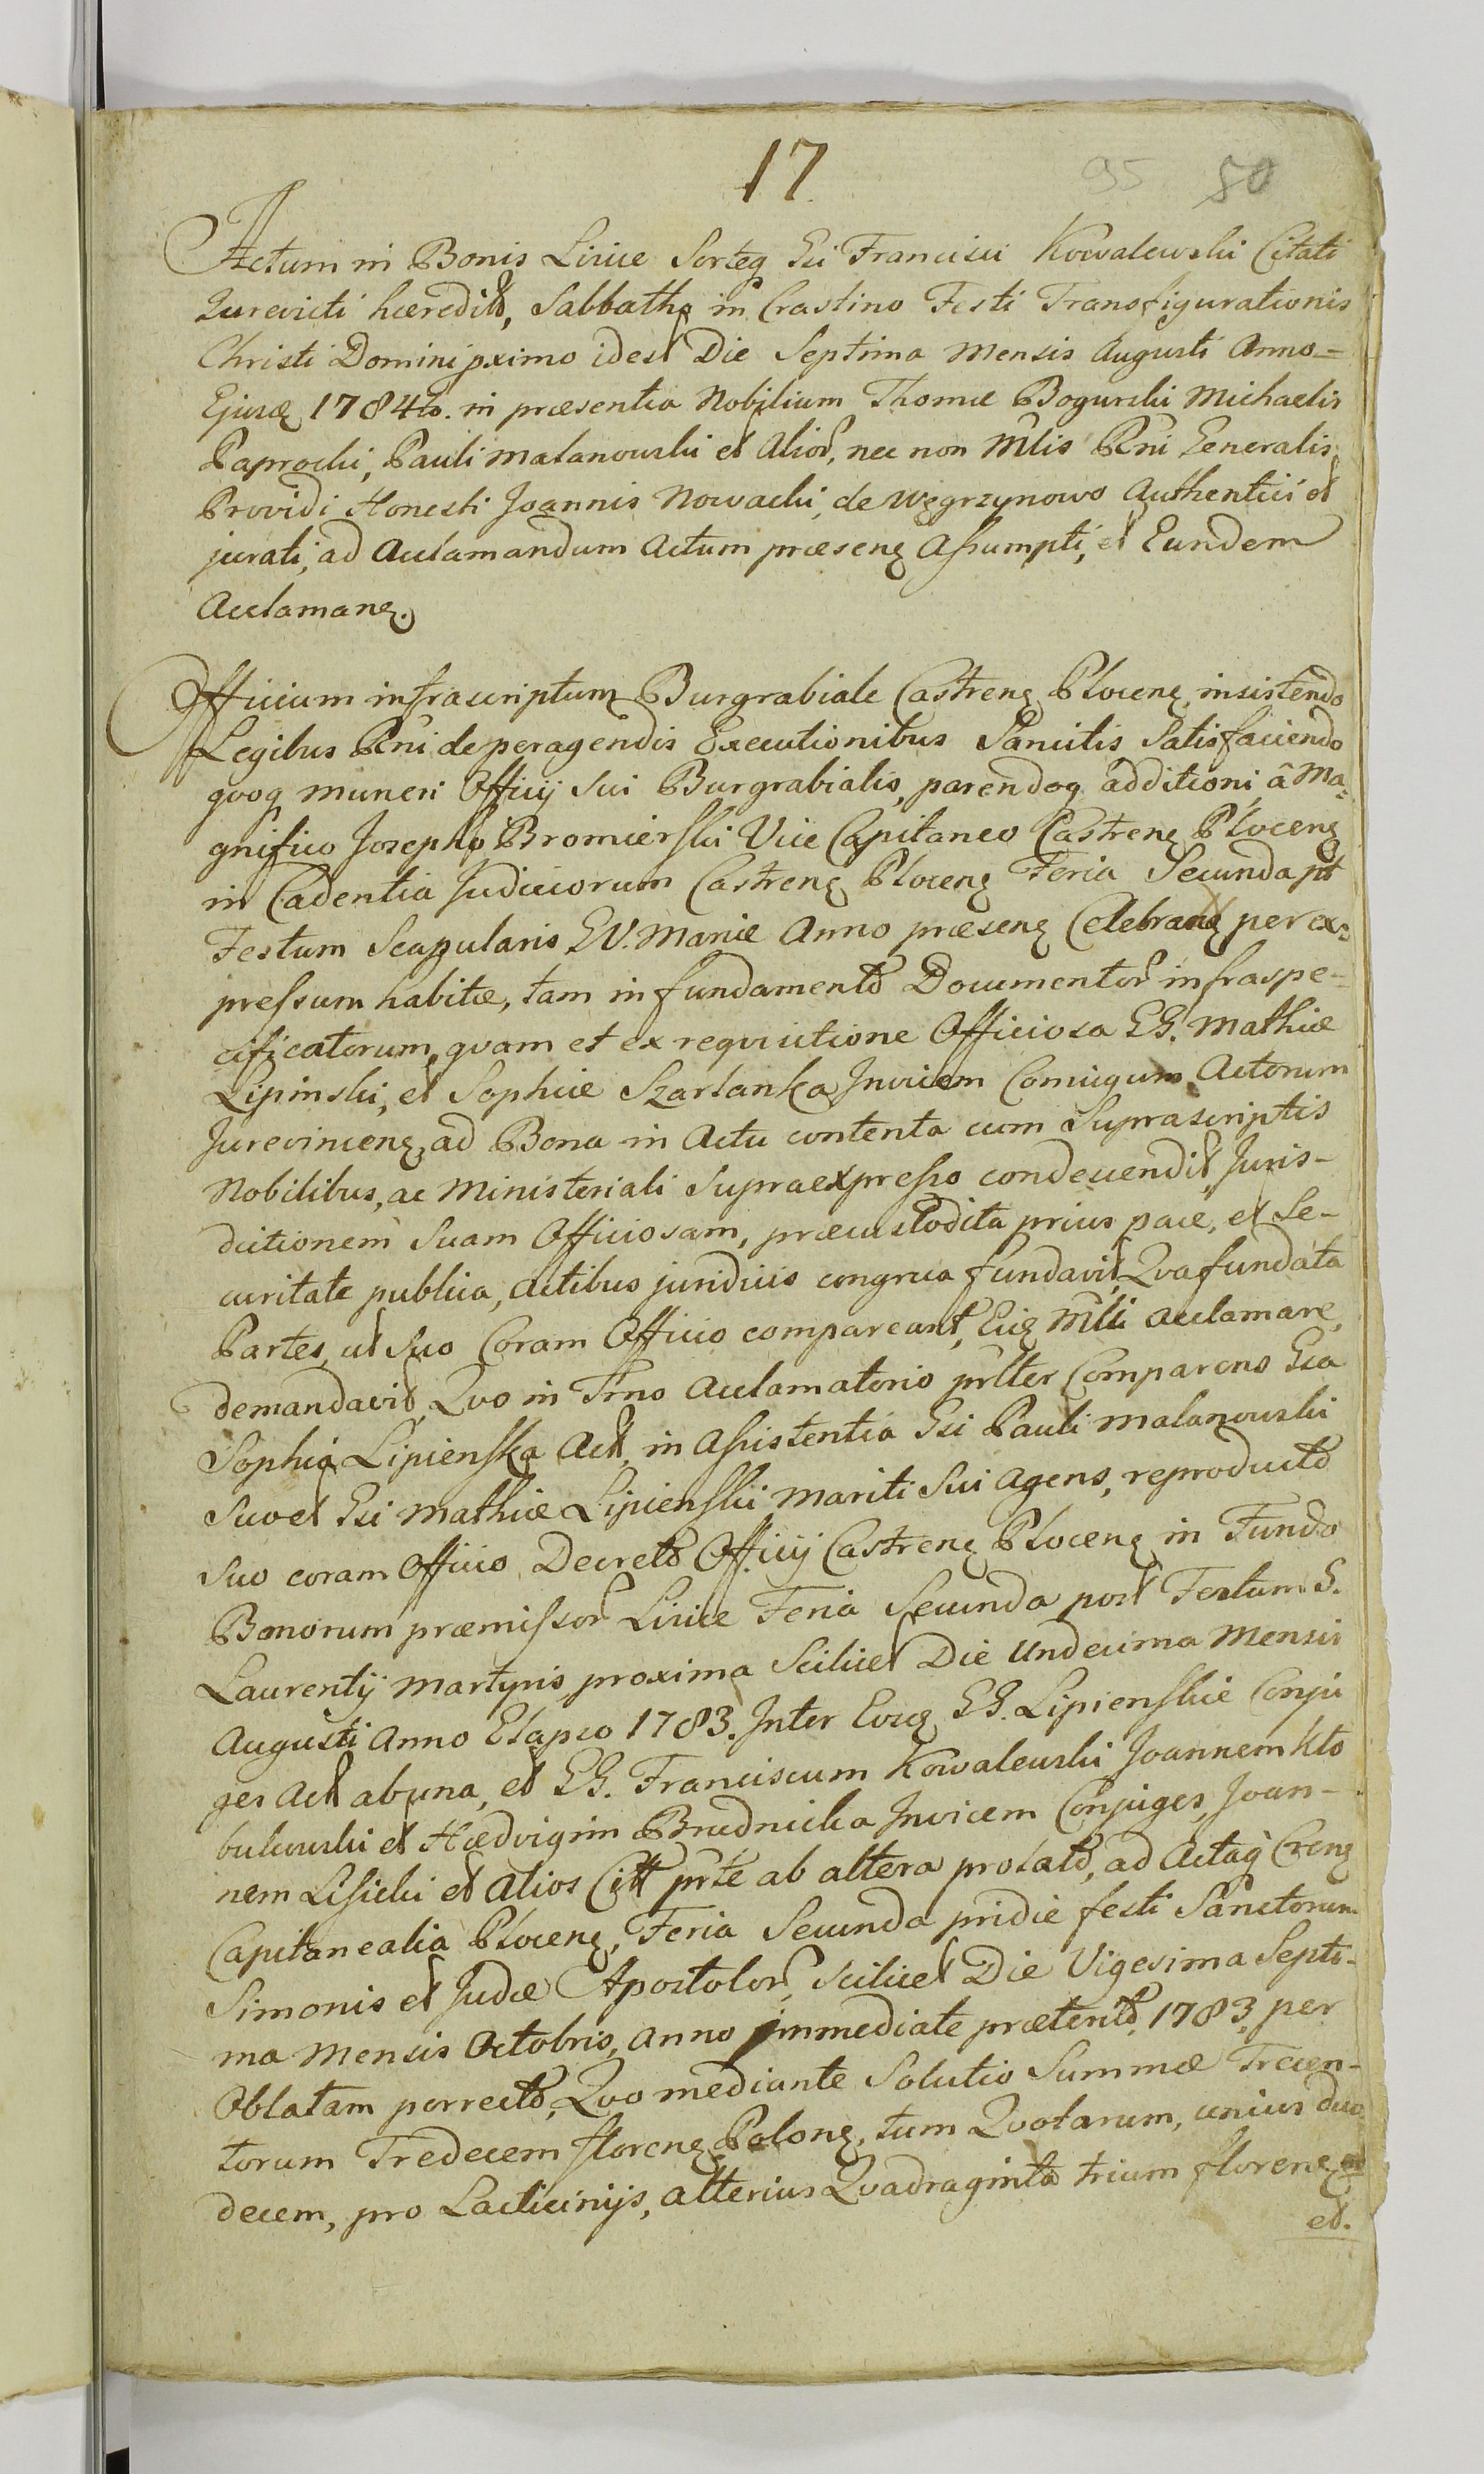 17
95 50
Actum in Bonis Lisice Sorteq Gsi Francisci Kowalewski Citati
Jurevicti hæredit̃, Sabbatho in Crastino Festi Transfigurationis
Christi Domini pximo idest Die Septima Mensis Augusti Anno=
Ejusq 1784to. in præsentia Nobilium Thomæ Bogurski Michaelis
Paprocki, Pauli Malanowski et Alior, nec non Mlis Rñi Generalis
Providi Honesti Joannis Nowacki, de Węgrzynowo Authentici et
jurati, ad Acclamandum Actum præsenq Assumpti, et Eundem
Acclamanq.
Officium infrascriptum Burgrabiale Castrenq Plocenq, insistendo
Legibus Rñi de peragendis Executionibus Sancitis Satisfaciendo
qvoq muneri Officij sui Burgrabialis, parendoq additioni â Ma=
gnifico Josepho Bromierski Vice Capitaneo Castrenq Plocenq
in Cadentia Judiciorum Castrenq Plocenq Feria Secunda pt
Festum Scapularis B.V. Mariæ Anno præsenq Celebranq per ex=
pressum habitæ, tam in fundamento Documentor infraspe-
cificatorum, qvam et ex reqvisitione Officiosa GG. Mathiæ
Lipinski, et Sophiæ Szarlanka Invicem Coniugum Actorum
Jurevincenq, ad Bona in Actu contenta cum Suprascriptis
Nobilibus, ac Ministeriali Supraexpresso condescendit, Juris-
dictionem Suam Officiosam, præcustodita prius pace, et Se-
curitate publica, Actibus juridicis congrua fundavit, Qva fundata
Partes, ut Suo Coram Officio compareant, Eiq Mli acclamare,
demandavit, Qvo in Trno Acclamatorio prlter Comparens Gsa
Sophia Lipienska Act, in Assistentia Gsi Pauli Malanowski
Suo et Gsi Mathiæ Lipienskii Mariti Sui Agens, reproducto
Suo coram Officio Decreto Officij Castrenq Plocenq in Fundo
Bonorum præmissor Lisice Feria Secunda post Festum S.
Laurentij Martyris proxima Scilicet Die Undecima Mensis
Augusti Anno Elapso 1783. Inter Eosq GG. Lipienskie Conju
ges Act ab una, et GG. Franciscum Kowalewski Joannem Kło
bukowski et Hædvigim Brudnicka Invicem Conjuges, Joan-
nem Lisicki et Alios Citt prte ab altera prolato, ad Actaq Crenq
Capitanealia Plocenq, Feria Secunda pridie festi Sanctorum
Simonis et Judæ Apostolor, scilicet Die Vigesima Septi-
ma Mensis Octobris, Anno immediate præterito, 1783, per
Oblatam porrecto, Qvo mediante Solutio Summæ Trecen-
torum Tredecem florenq Polonq, tum Qvotarum, unius duo
decem, pro Lacticinijs, alterius Qvadraginta trium florenq
et.